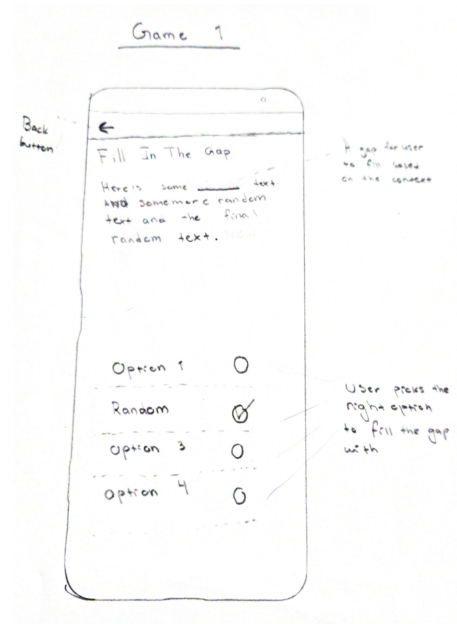 Game 1
Back
button
←
Fill In The Gap
Here is some ______ text.
And some more random
text and the final
random text.
A gap for user
to fill based
on the context
Option 1
Random
Option 3
Option 4
User picks the
right option
to fill the gap
with